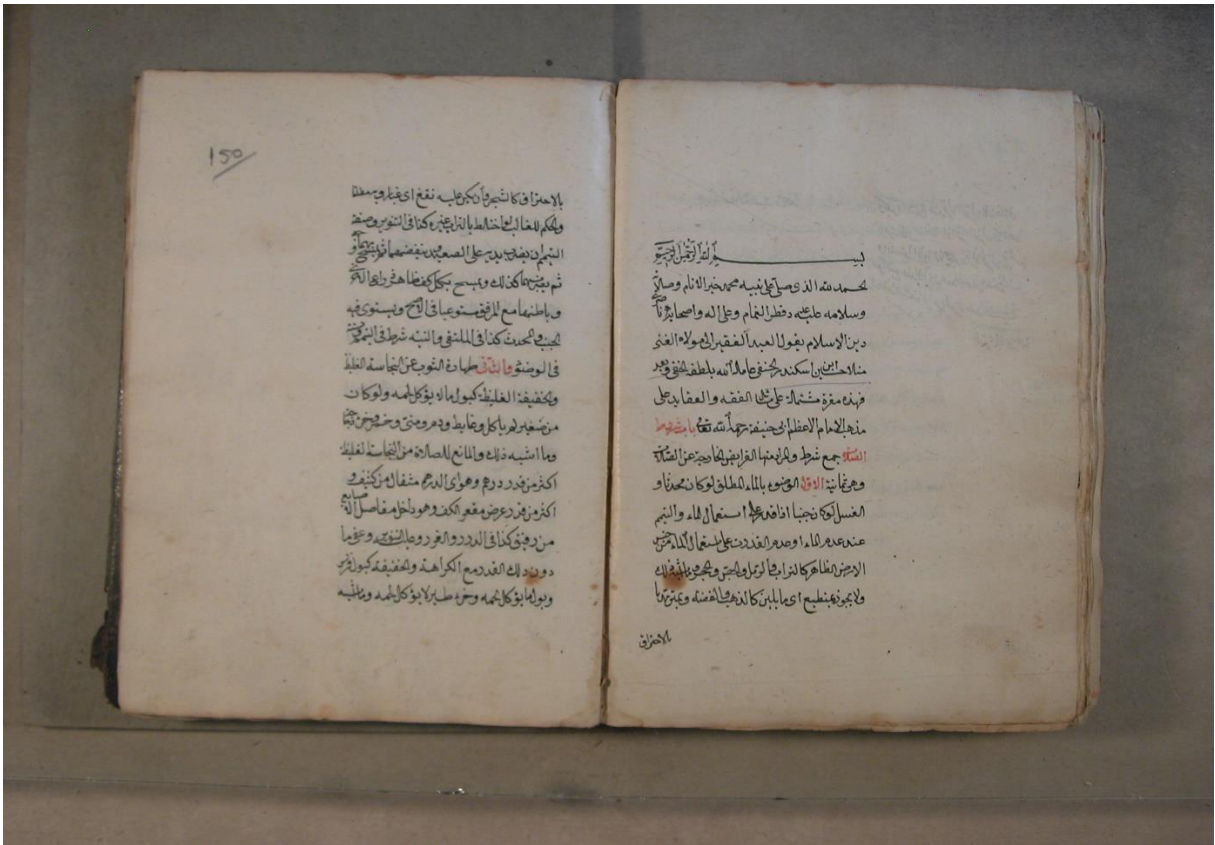 بسم الله الرحمن الرحيم
الحمد لله الذي صلى على نبيه محمد خير الانام وصلاته
وسلامه عليه عدد قطر الغمام وعلى اله واصحابه
دين الاسلام يقول العبد الفقير الى مولاه الغني
منلا بن اسكندر الحنفي عامله الله بلطفه الخفي وبعد
فهذه مقدمة مشتملة على الفقه والعقايد على
مذهب الامام الاعظم ابي حنيفة رحمه الله تعالى باب شروط
الصلاة جمع شرط والمراد منها الفرايض الخارجة عن الصلاة
وهي ثمانية الاول الوضوء بالماء المطلق لو كان محدثا و
الغسل لو كان جنبا استعمال الماء والتيمم
عند عدم الماء او عدم القدرت على استعمال الماء من جنس
الارض الطاهر كالتراب والرمل والجص والحجر
ولا يجوز بمنطبع اي ما يلين كالذهب والفضة و
بالاحتراق
150
بالاحتراق كالشجر وان لم يكن عليه نقع اي غبار
والحكم للغالب لو اختلط بالتراب غيره كذا في التنوير وصفة
التيمم ان يضرب يديه على الصعيد فينفضهما ثم يمسح بهما
ثم يضربهما كذلك ويمسح بكل كف ظاهر ذراع
وباطنها مع المرفق مستوعبا في الاصح ويستوي فيه
الجنب والمحدث كذا في الملتقى والنية شرط في التيمم
في الوضوء والثاني طهارة الثوب عن النجاسة الغليظة
والخفيفة الغليظة كبول ما لا يؤكل لحمه ولو كان
من صغير لم ياكل وغايط ودم ومني وخمر
وما اشبه ذلك والمانع للصلاة من النجاسة الغليظة
اكثر من قدر درهم وهو اي الدرهم مثقال من كثيف و
اكثر من قدر عرض مقعر الكف وهو داخل مفاصل
من رقيق كذا في الدرر والغرر وعفو ما
دون ذلك القدر مع الكراهة والخفيفة كبول فرس
وبول ما يؤكل لحمه وخرء طير لا يؤكل لحمه